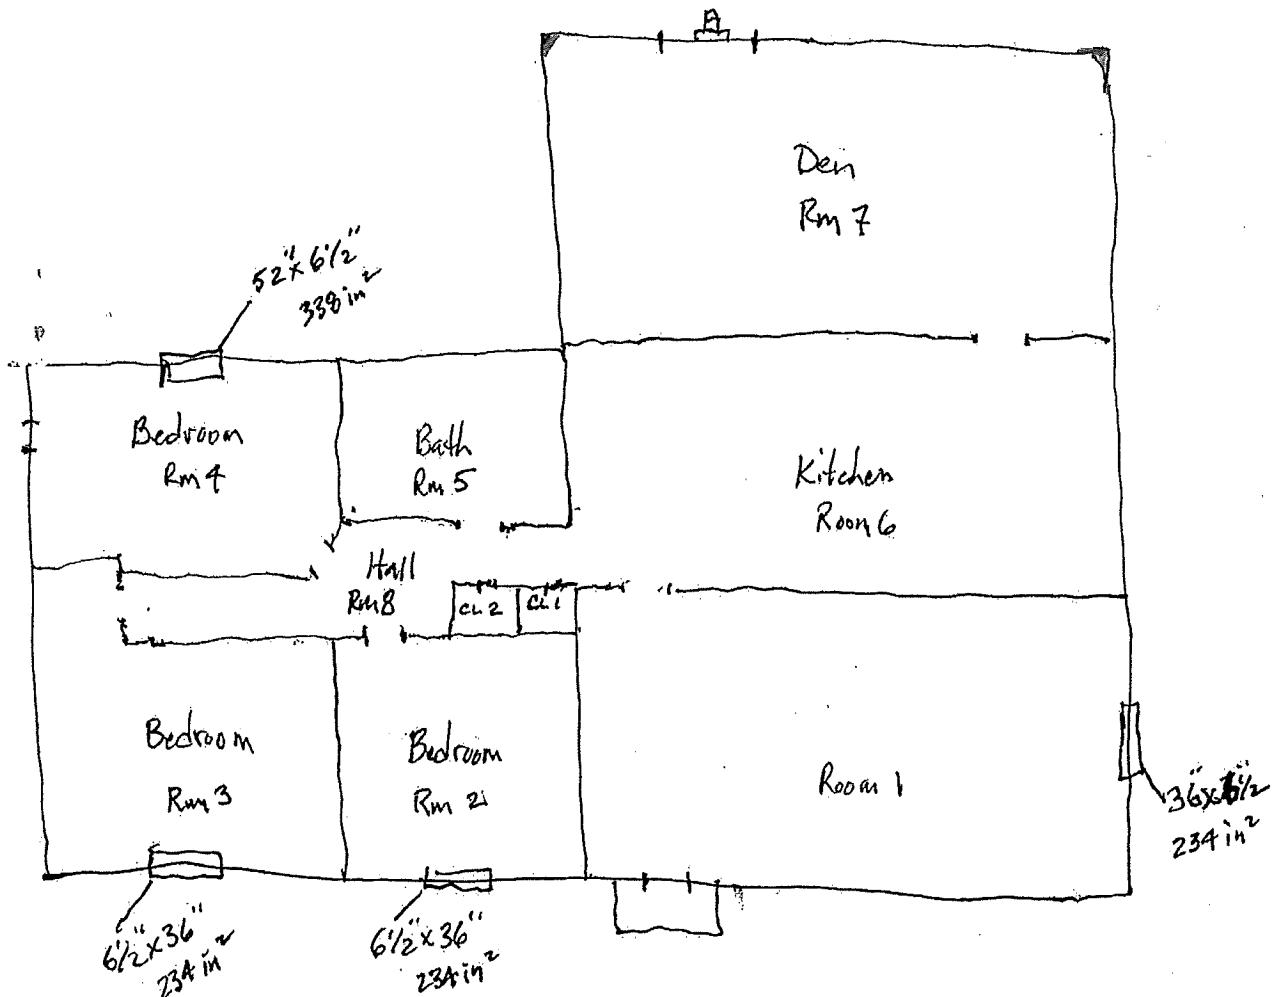 A
Den
Rm 7
52" x 6 1/2"
338 in²
Bedroom
Rm 4
Bath
Rm 5
Kitchen
Room 6
Hall
Rm 8
CL 2
CL 1
Bedroom
Rm 3
Bedroom
Rm 2
Room 1
36" x 6 1/2
234 in²
6 1/2" x 36"
234 in²
6 1/2" x 36"
234 in²